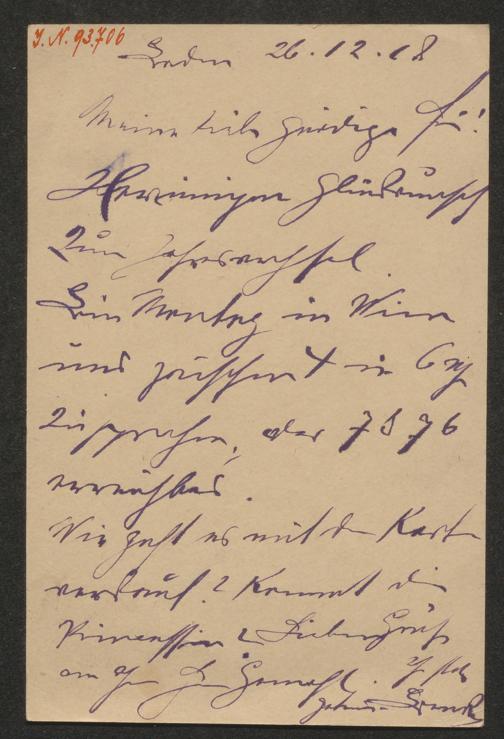 I. N. 93.706
Baden 26.12.18
Meine liebe gnädige Frau!
Herzinnigen Glückwunsch
zum Jahreswechsel.
Bin Montag in Wien
und zwischen 4 und 6 Uhr
zu sprechen, oder 7576
erreichbar.
Wie geht es mit dem Karten
verkauf? Kommt die
Prinzessin? Lieben Gruß
an Herrn Gemahl. Ihr stets